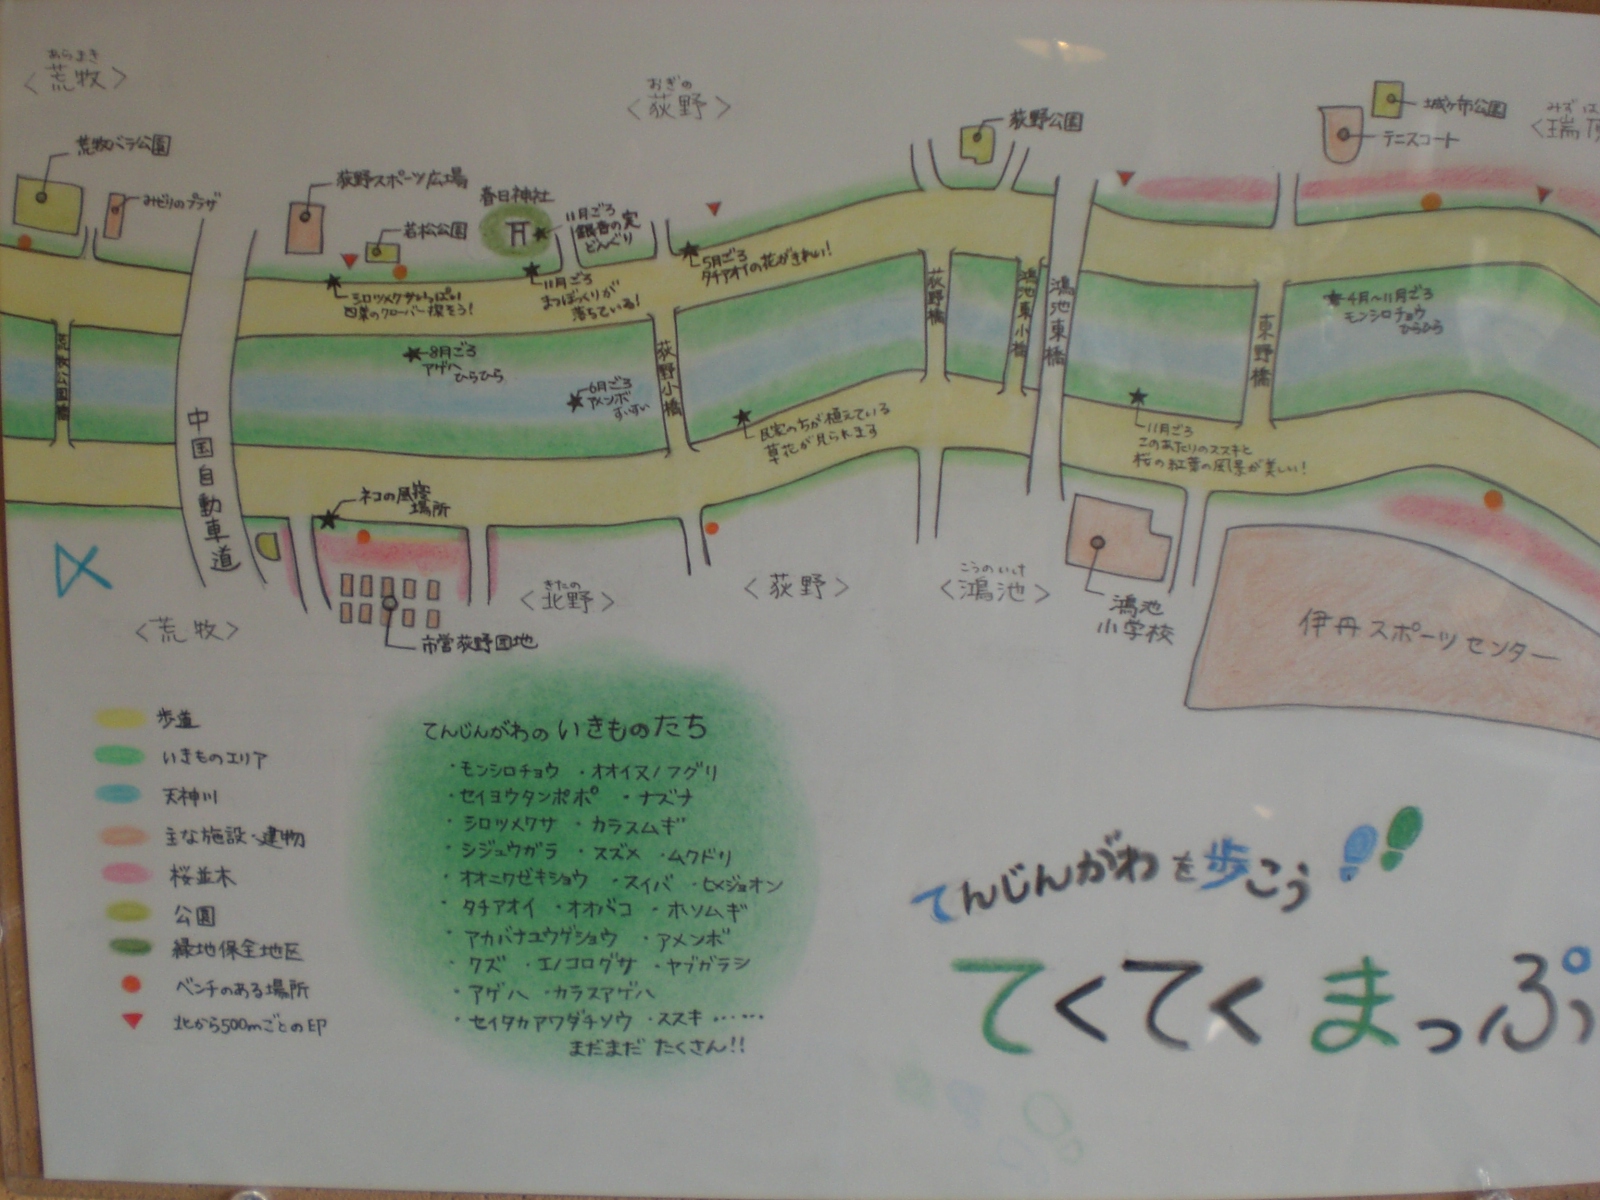 あらまき
〈荒牧〉
おぎの
〈荻野〉
荒牧バラ公園
みどりのプラザ
荻野スポーツ広場
若松公園
春日神社
11月ごろ
銀杏の実
どんぐり
荻野公園
城ヶ市公園
テニスコート
みずは
〈瑞
シロツメクサいっぱい
四葉のクローバー探そう!
11月ごろ
まつぼっくりが
落ちている!
5月ごろ
タチアオイの花がきれい!
8月ごろ
アゲハ
ひらひら
6月ごろ
アメンボ
すいすい
4月〜11月ごろ
モンシロチョウ
ひらひら
中国自動車道
荻野小橋
荻野橋
鴻池東小橋
鴻池東橋
東野橋
民家の方が植えている
草花が見られます
11月ごろ
このあたりのススキと
桜の紅葉の風景が美しい!
ネコの昼寝
場所
〈荒牧〉
市営荻野団地
きたの
〈北野〉
〈荻野〉
こうのいけ
〈鴻池〉
鴻池
小学校
伊丹スポーツセンター
歩道
いきものエリア
天神川
主な施設・建物
桜並木
公園
緑地保全地区
ベンチのある場所
北から500mごとの印
てんじんがわのいきものたち
・モンシロチョウ ・オオイヌノフグリ
・セイヨウタンポポ ・ナズナ
・シロツメクサ ・カラスムギ
・シジュウガラ ・スズメ ・ムクドリ
・オオニワゼキショウ ・スイバ ・ヒメジョオン
・タチアオイ ・オオバコ ・ホソムギ
・アカバナユウゲショウ ・アメンボ
・クズ ・エノコログサ ・ヤブガラシ
・アゲハ ・カラスアゲハ
・セイタカアワダチソウ ・ススキ……
まだまだ たくさん!!
てんじんがわを歩こう
てくてくまっぷ